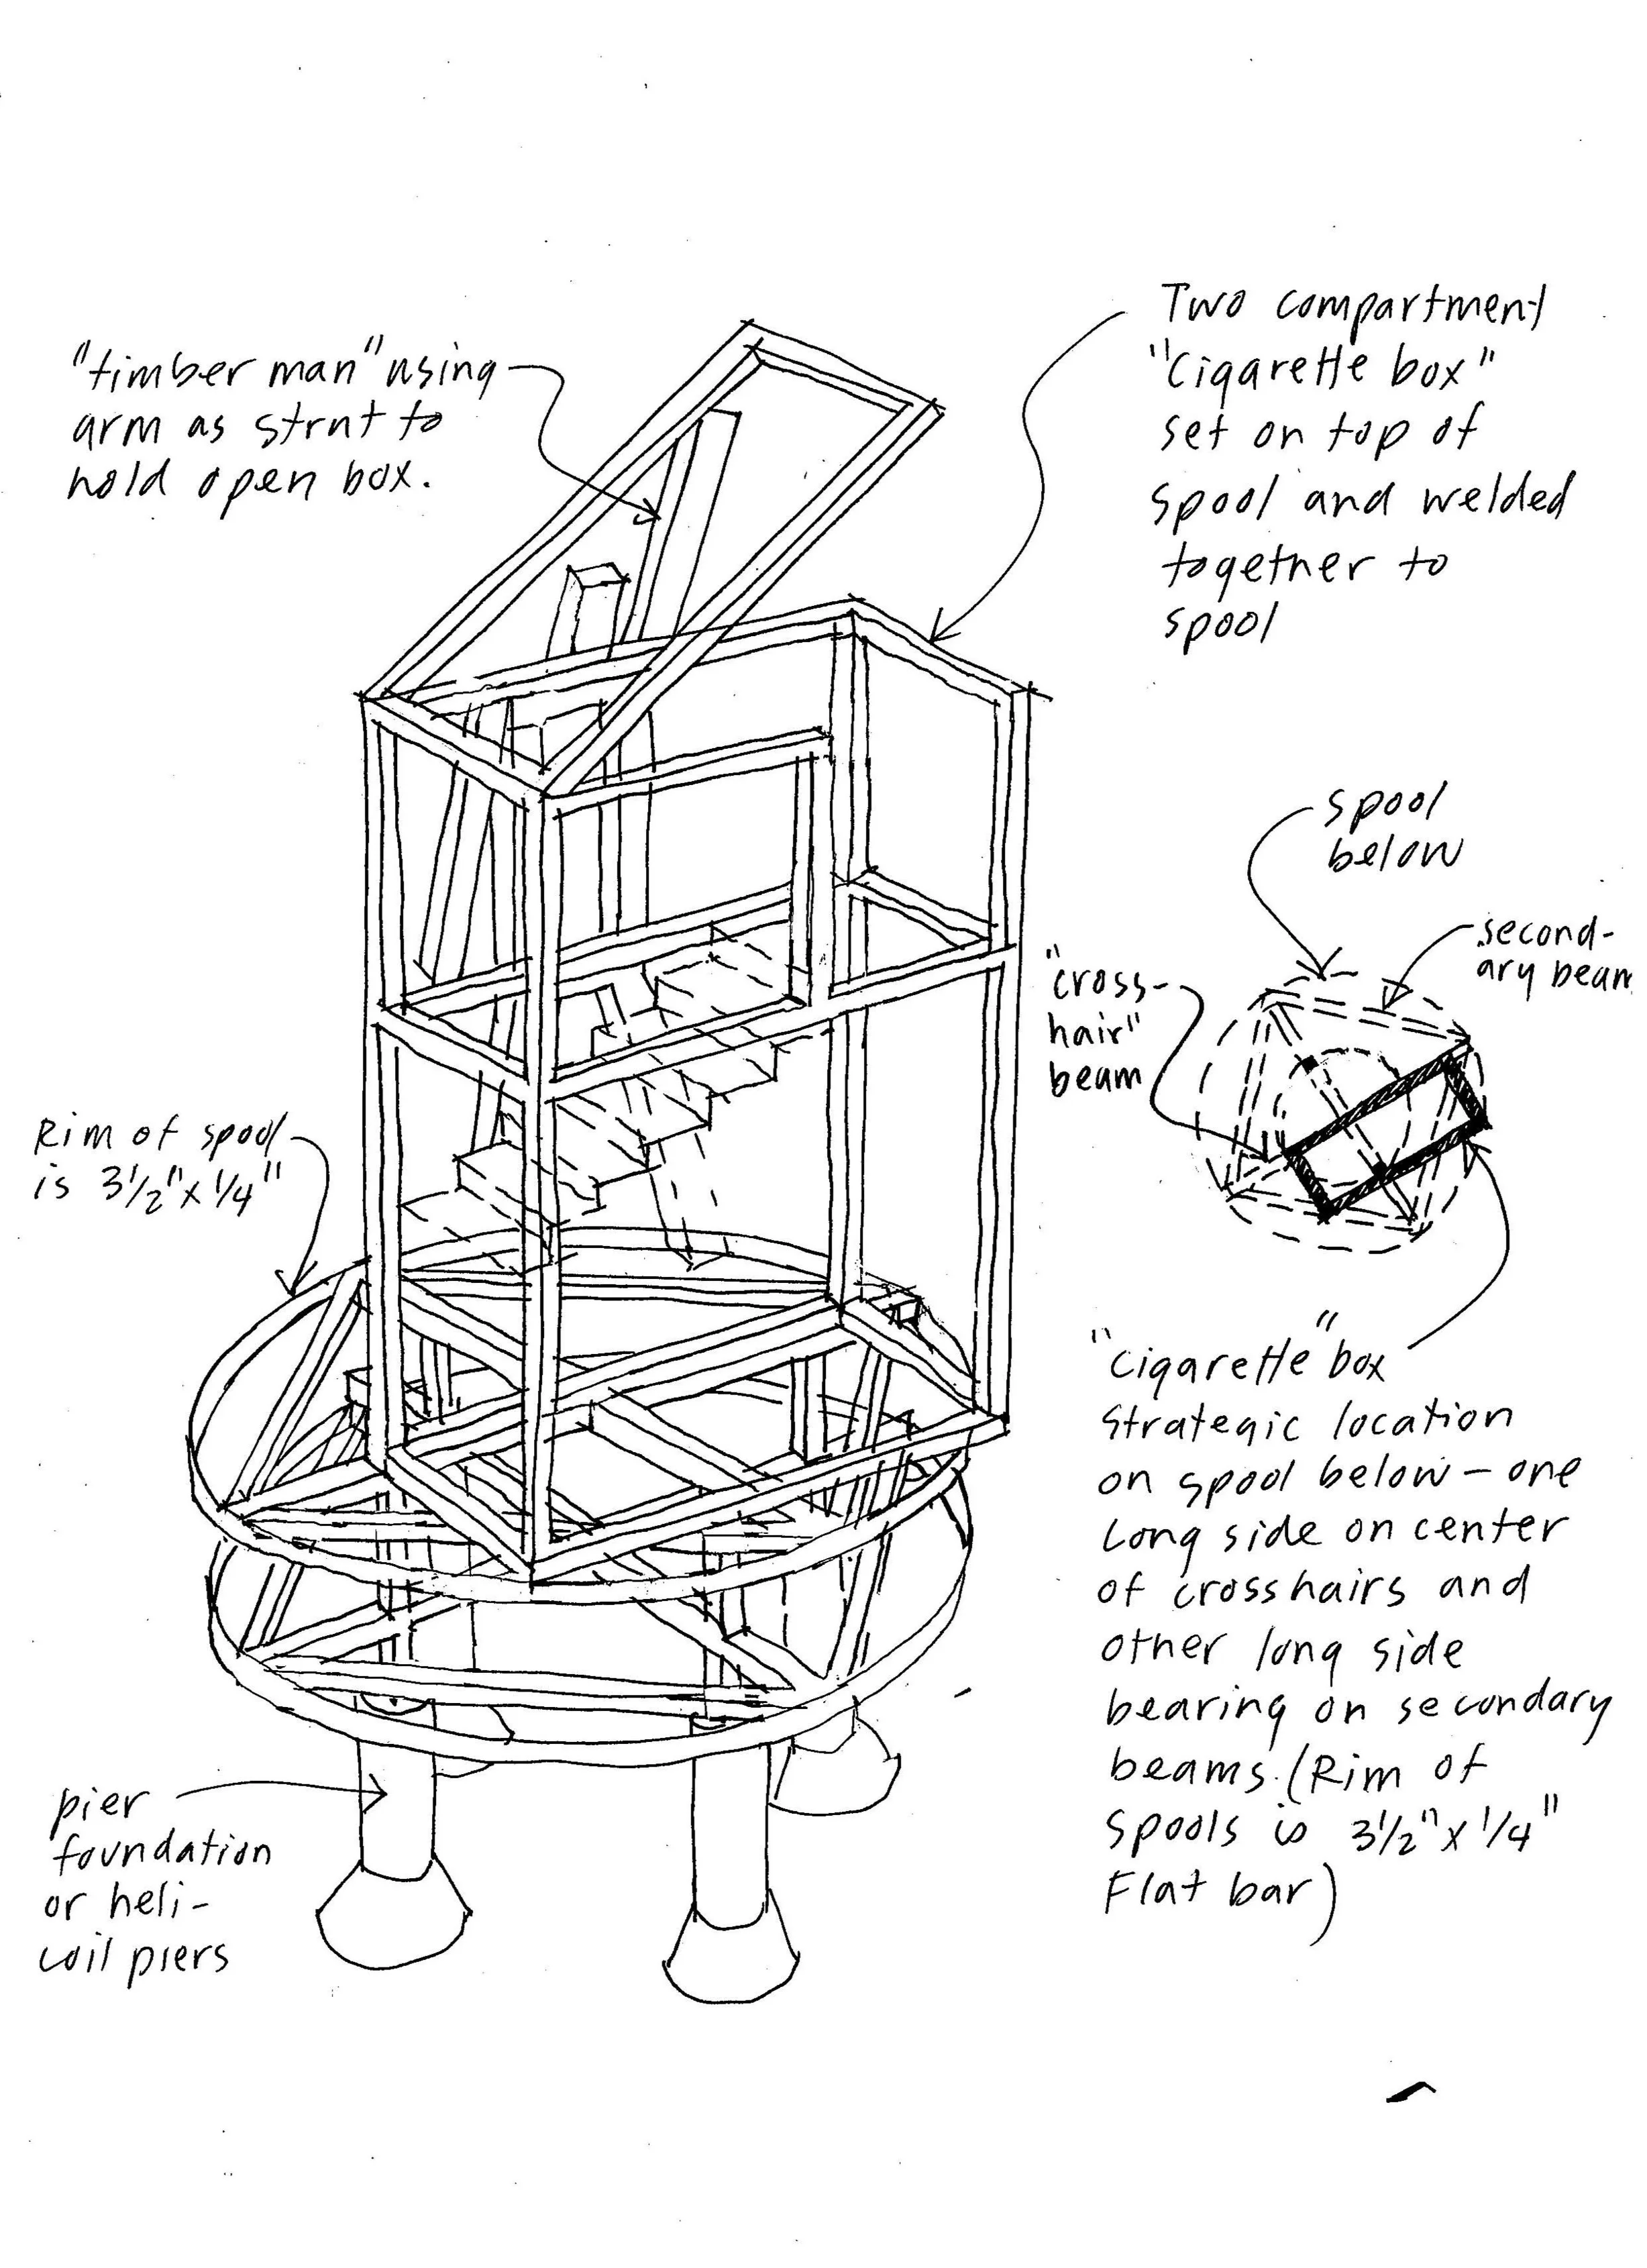 "timber man" using
arm as strut to
hold open box.
Two compartment
"cigarette box"
set on top of
spool and welded
together to
spool
spool
below
second-
ary beam
"cross-
hair"
beam
Rim of spool
is 3 1/2" x 1/4"
"cigarette" box
strategic location
on spool below - one
long side on center
of crosshairs and
other long side
bearing on secondary
beams. (Rim of
spools is 3 1/2" x 1/4"
Flat bar)
pier
foundation
or heli-
coil piers